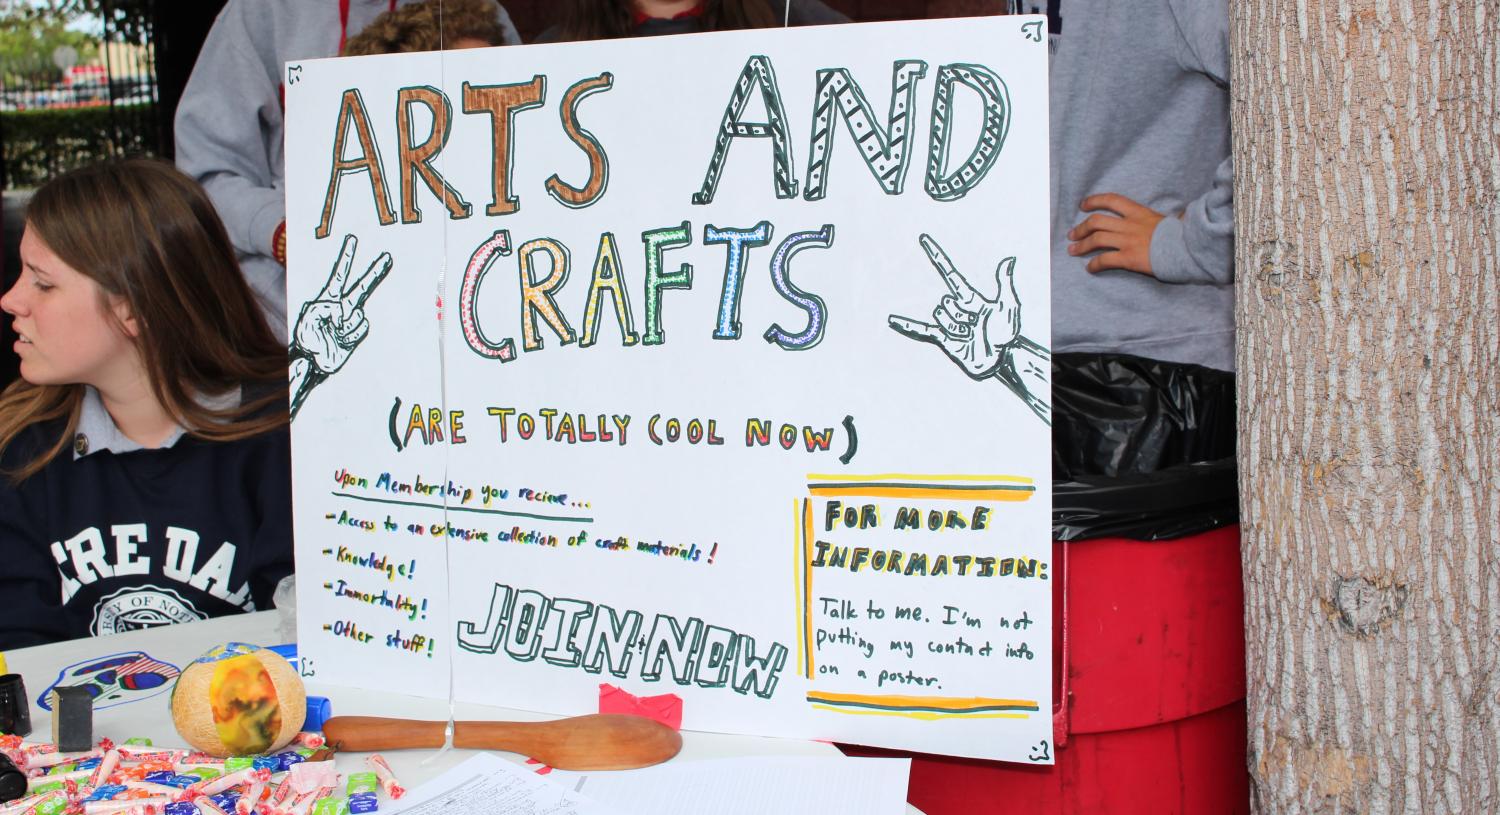 ARTS AND
CRAFTS
(ARE TOTALLY COOL NOW)
Upon Membership you recieve...
- Access to an extensive collection of craft materials!
- Knowledge!
- Immortality!
- Other stuff!
JOIN NOW
FOR MORE
INFORMATION:
Talk to me. I'm not
putting my contact info
on a poster.
TRE DA
SITY OF NOT